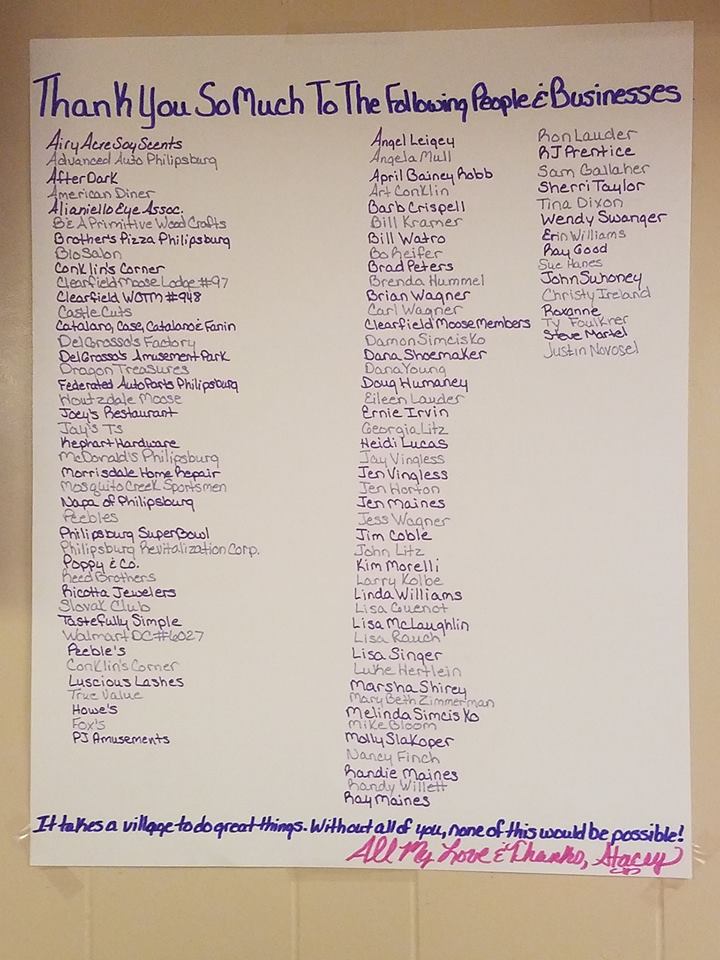 Thank You So Much To The Following People & Businesses
Airy Acre Soy Scents
Advanced Auto Philipsburg
After Dark
American Diner
Alianiello Eye Assoc.
B & A Primitive Wood Crafts
Brother's Pizza Philipsburg
Blo Salon
Conklin's Corner
Clearfield Moose Lodge #97
Clearfield WOTM #948
Castle Cuts
Catalano, Case, Catalano & Fanin
DelGrosso's Factory
DelGrosso's Amusement Park
Dragon Treasures
Federated Auto Parts Philipsburg
Houtzdale Moose
Joey's Restaurant
Jay's TS
Kephart Hardware
McDonald's Philipsburg
Morrisdale Home Repair
Mosquito Creek Sportsmen
Napa of Philipsburg
Peebles
Philipsburg SuperBowl
Philipsburg Revitalization Corp.
Poppy & Co.
Reed Brothers
Ricotta Jewelers
Slovak Club
Tastefully Simple
Walmart DC #6027
Peeble's
Conklin's Corner
Luscious Lashes
True Value
Howe's
Fox's
PJ Amusements
Angel Leigey
Angela Mull
April Bainey Robb
Art Conklin
Barb Crispell
Bill Kramer
Bill Watro
Bo Reifer
Brad Peters
Brenda Hummel
Brian Wagner
Carl Wagner
Clearfield Moose Members
Damon Simcisko
Dana Shoemaker
Dana Young
Doug Humaney
Eileen Lauder
Ernie Irvin
Georgia Litz
Heidi Lucas
Jay Vingless
Jen Vingless
Jen Horton
Jen Maines
Jess Wagner
Jim Coble
John Litz
Kim Morelli
Larry Kolbe
Linda Williams
Lisa Guenot
Lisa McLaughlin
Lisa Rauch
Lisa Singer
Luke Hertlein
Marsha Shirey
Mary Beth Zimmerman
Melinda Simcisko
Mike Bloom
Molly Slakoper
Nancy Finch
Randie Maines
Randy Willett
Ray Maines
Ron Lauder
RJ Prentice
Sam Gallaher
Sherri Taylor
Tina Dixon
Wendy Swanger
Erin Williams
Ray Good
Sue Hanes
John Suhoney
Christy Ireland
Roxanne
Ty Faulkner
Steve Martel
Justin Novosel
It takes a village to do great things. Without all of you, none of this would be possible!
All My Love & Thanks, Stacey